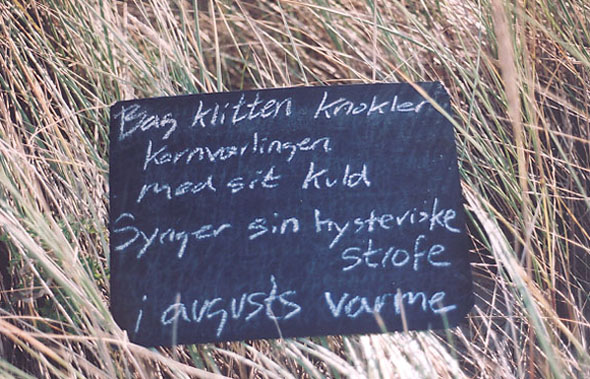 Bag klitten knokler
Kornværlingen
med sit kuld
Synger sin hysteriske
strofe
i augusts varme